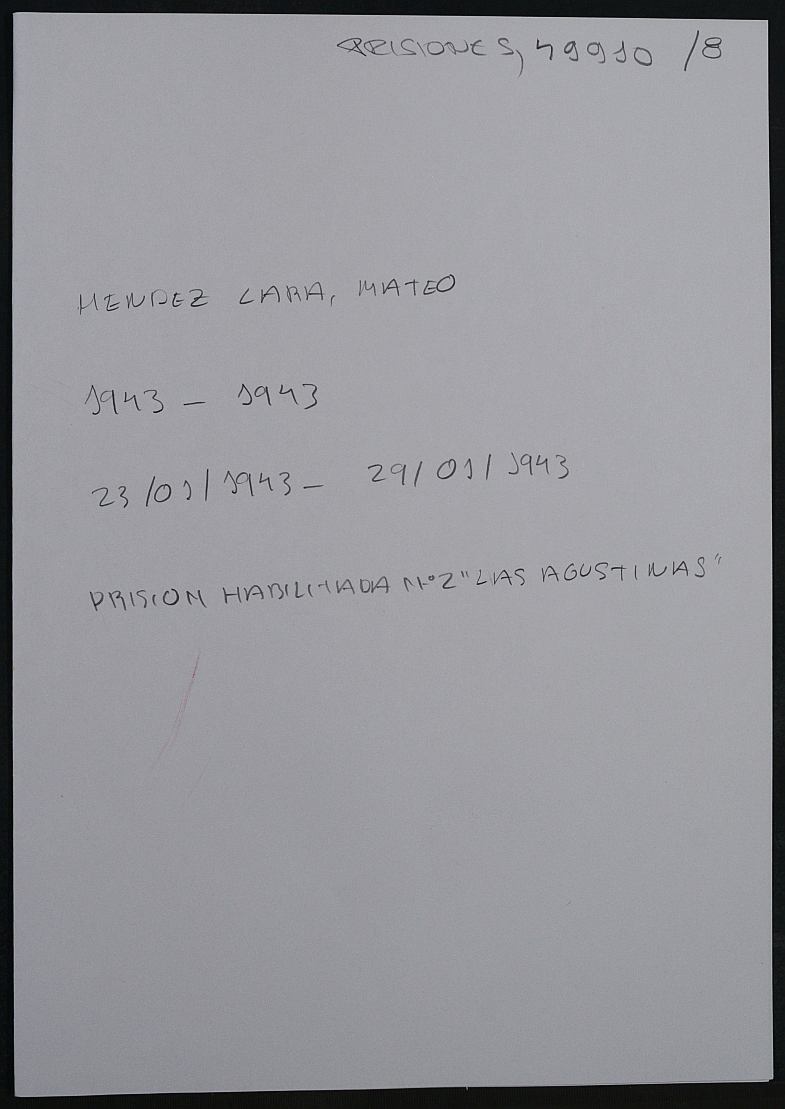 PRISIONES, 49910 /8
MENDEZ LARA, MATEO
1943 - 1943
23/01/1943 - 29/01/1943
PRISION HABILITADA Nº2 "LAS AGUSTINAS"